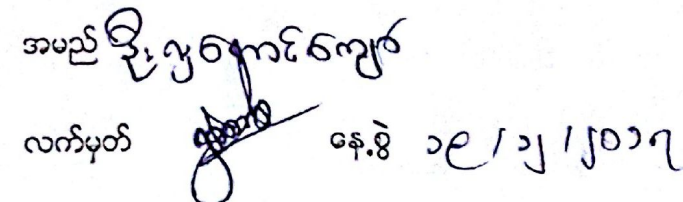 အမည် ဦးလှကျောင်ကျော်
လက်မှတ် နေ့စွဲ ၁၉/၁၂/၂၀၁၇